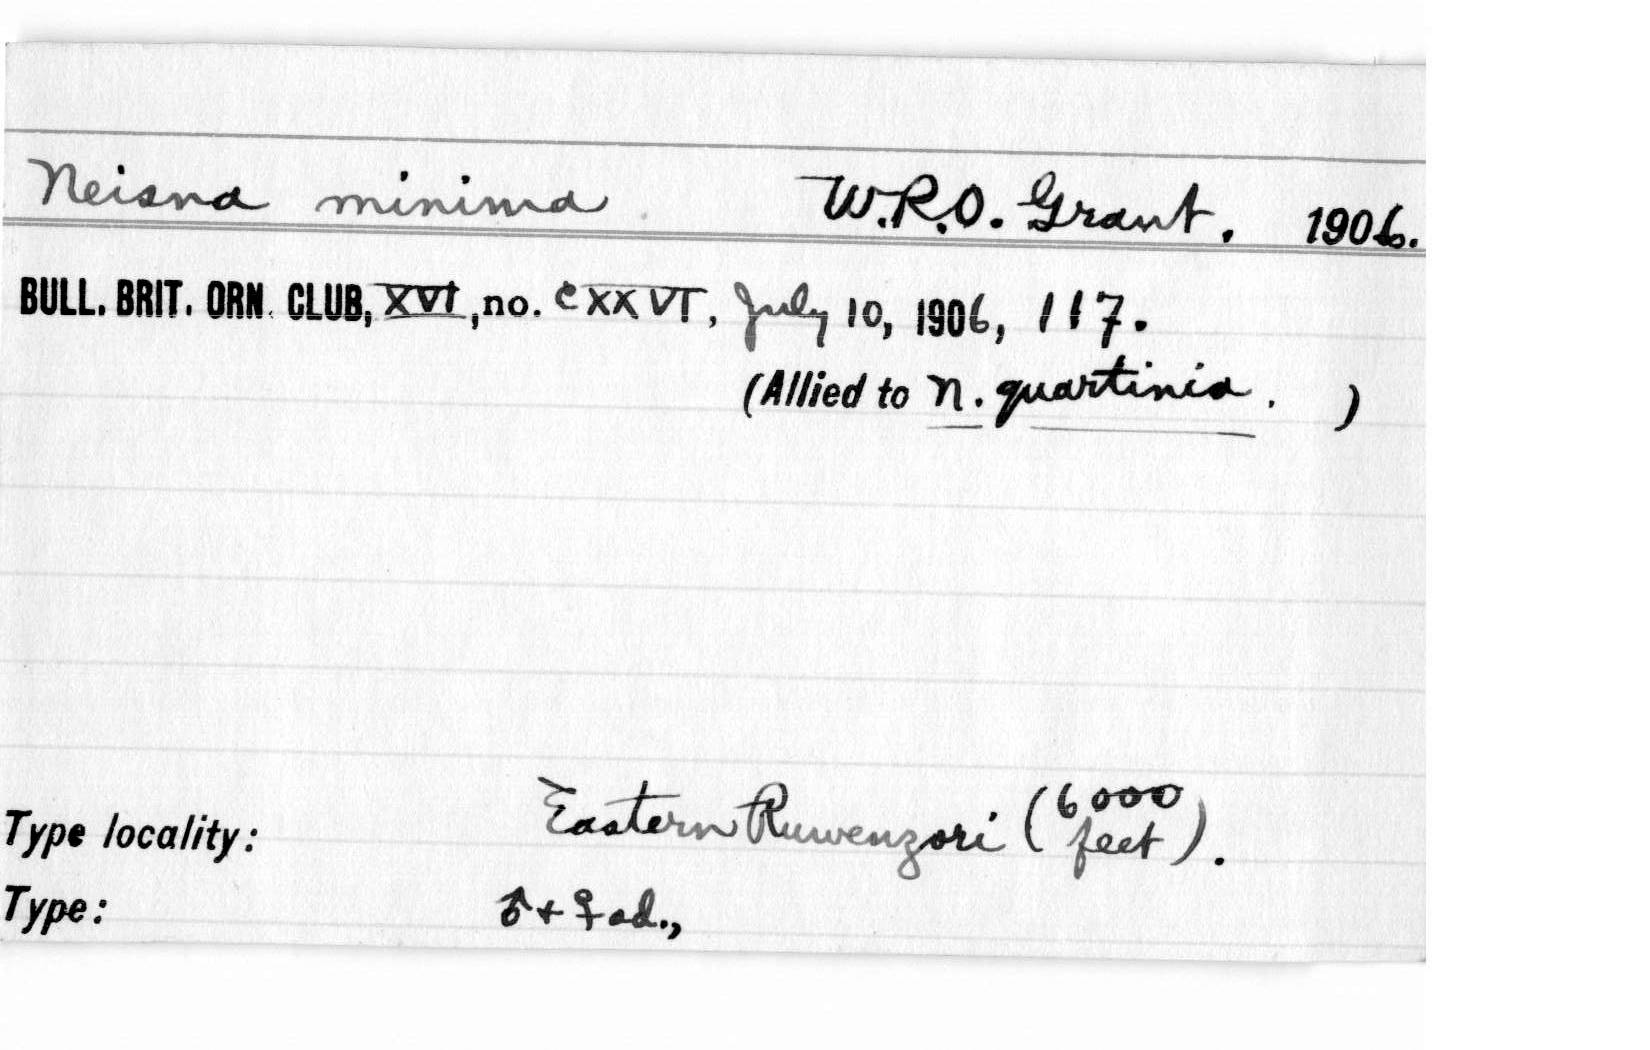 Neisna minima W.R.O. Grant, 1906.
BULL. BRIT. ORN. CLUB, XVI, no. CXXVI, July 10, 1906, 117.
(Allied to N. quartinia. )
Type locality: Eastern Ruwenzori (6000 feet).
Type: ♂ + ♀ ad.,